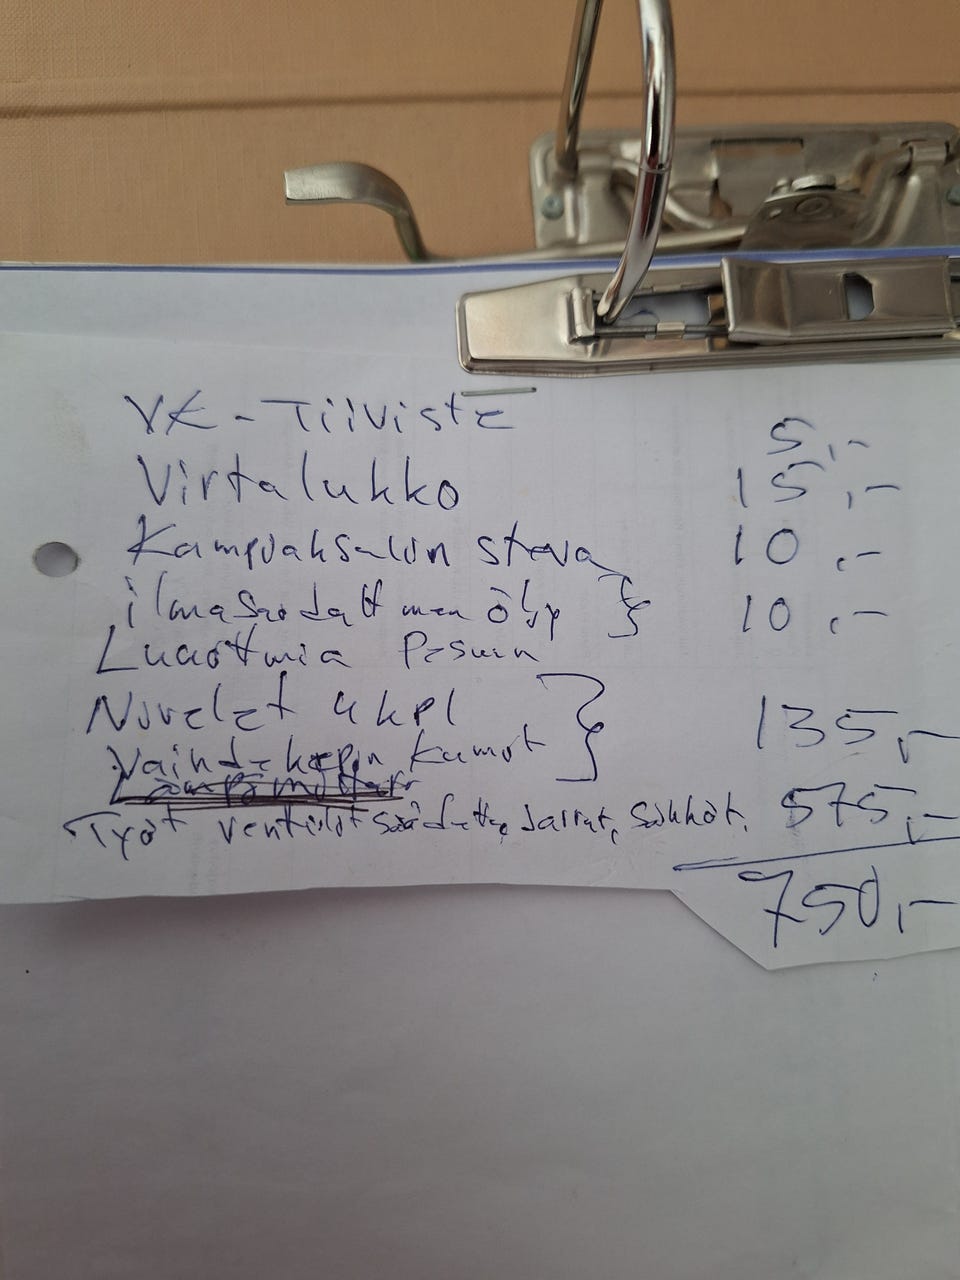 VK-Tiiviste 5,-
Virtalukko 15,-
Kampiakselin stefa 10,-
ilmasuodattimen öljy 10,-
Liuotinia Pesuun
Nivelet 4kpl 135,-
Vaihdekepin kumit
Työt venttiilit säädetty, Jarrut, sähköt, 575,-
750,-